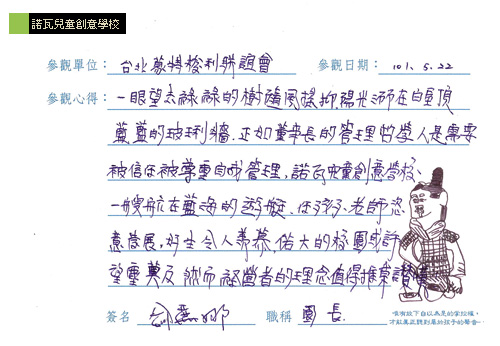 諾瓦兒童創意學校
參觀單位： 台北蒙特梭利聯誼會 參觀日期： 101. 5. 22
參觀心得： 一眼望去綠綠的樹隨風搖抑,陽光洒在白屋頂
藍藍的玻琍牆.正如董事長的管理哲學人是需要
被信任被尊重自我管理,諾瓦兒童創意學校、
一艘航在藍海的遊艇、任孩子、老師恣
意發展,好生令人羨慕.偌大的校園或許
望塵莫及 然而經營者的理念值得推崇讚嘆
唯有放下自以為是的掌控權，
才能真正聽到屬於孩子的聲音~
簽名 職稱 園 長.